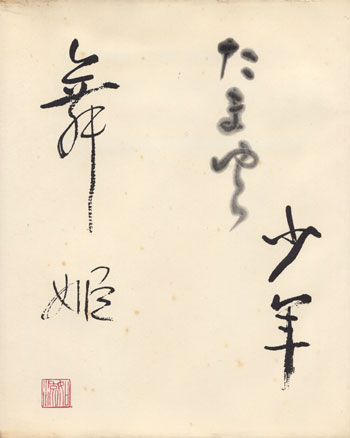 少年
たまゆら
舞姫